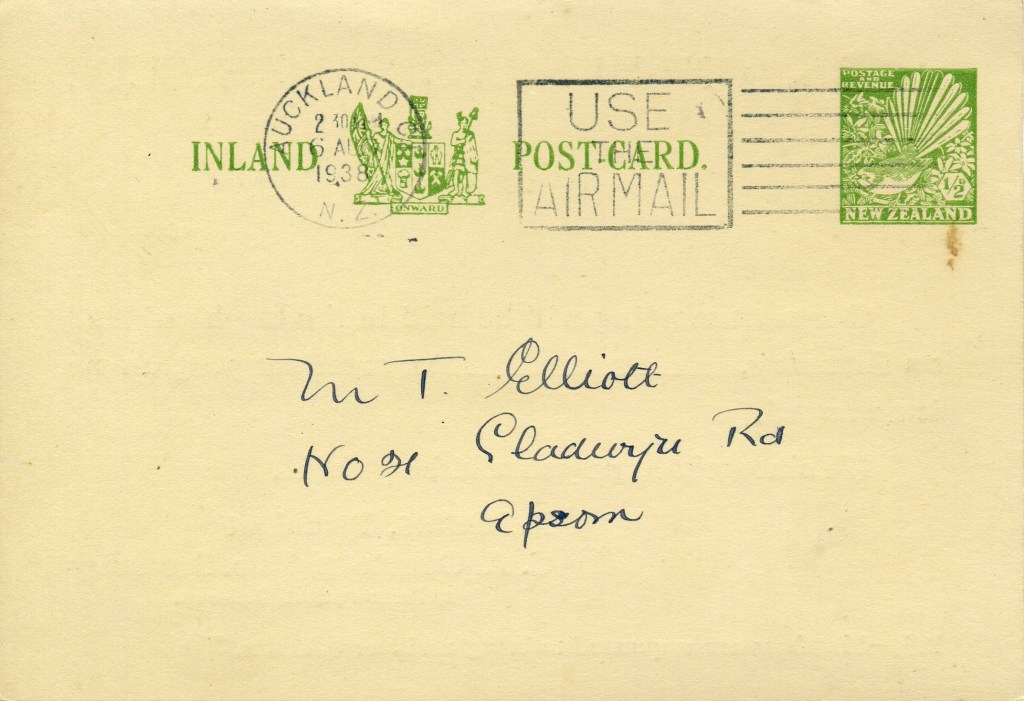 AUCKLAND
N.Z.
1938
INLAND
ONWARD
POST CARD.
USE
THE
AIR MAIL
POSTAGE
AND
REVENUE
½D
NEW ZEALAND
M T. Elliott
No 21 Gladwyn Rd
Epsom